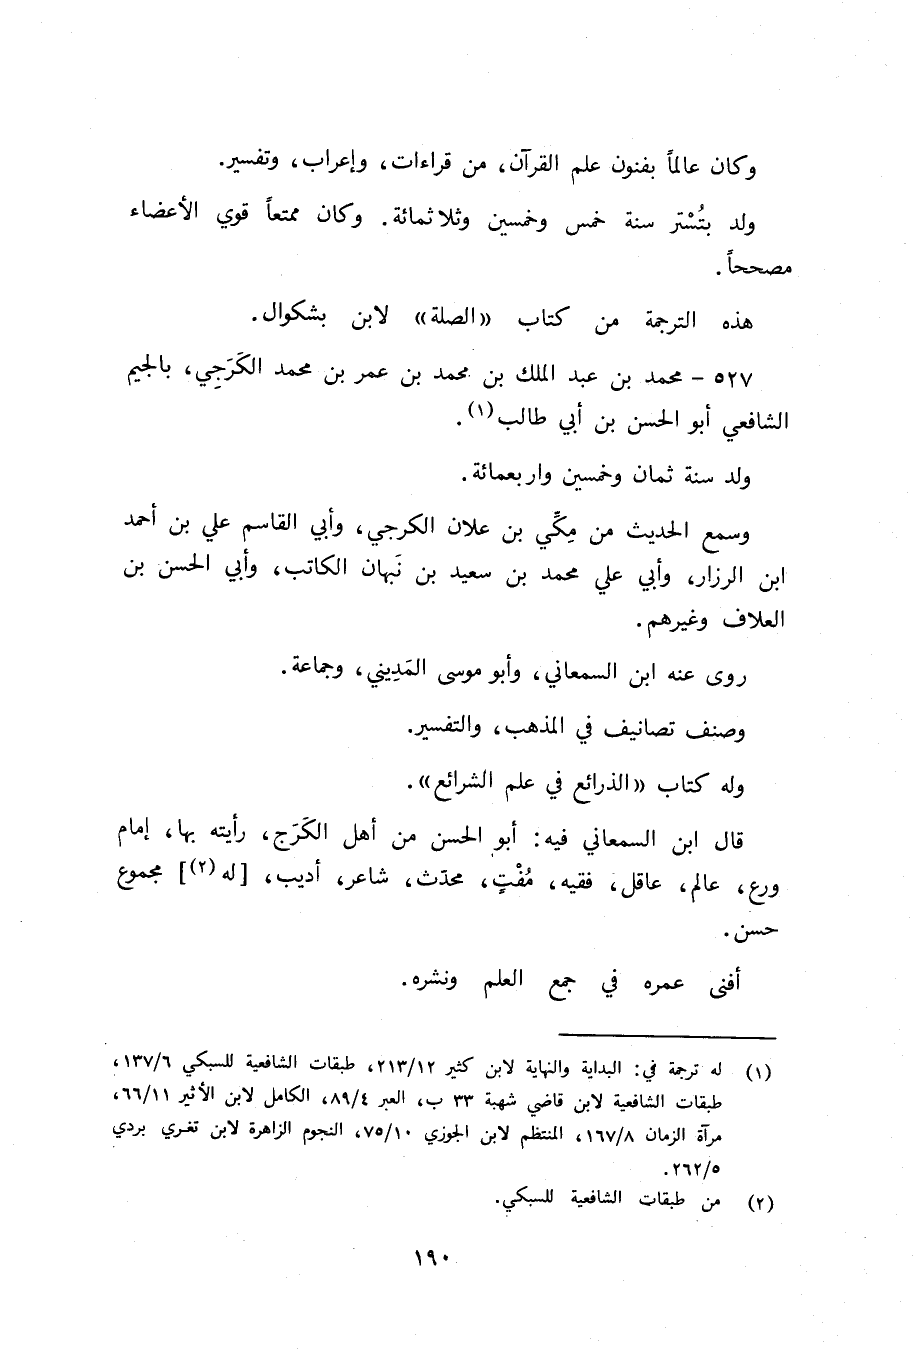 وكان عالماً بفنون علم القرآن، من قراءات، وإعراب، وتفسير.
ولد بتُسْتر سنة خمس وخمسين وثلاثمائة. وكان ممتعاً قوي الأعضاء
مصححاً.
هذه الترجمة من كتاب «الصلة» لابن بشكوال.
٥٢٧ - محمد بن عبد الملك بن محمد بن عمر بن محمد الكَرَجِي، بالجيم
الشافعي أبو الحسن بن أبي طالب(١).
ولد سنة ثمان وخمسين واربعمائة.
وسمع الحديث من مِكِّي بن علان الكرجي، وأبي القاسم علي بن أحمد
ابن الرزار، وأبي علي محمد بن سعيد بن نَبهان الكاتب، وأبي الحسن بن
العلاف وغيرهم.
روى عنه ابن السمعاني، وأبو موسى المَدِيني، وجماعة.
وصنف تصانيف في المذهب، والتفسير.
وله كتاب «الذرائع في علم الشرائع».
قال ابن السمعاني فيه: أبو الحسن من أهل الكَرَج، رأيته بها، إمام
ورع، عالم، عاقل، فقيه، مُفْتٍ، محدّث، شاعر، أديب، [له(٢)] مجموع
حسن.
أفنى عمره في جمع العلم ونشره.
(١) له ترجمة في: البداية والنهاية لابن كثير ٢١٣/١٢، طبقات الشافعية للسبكي ١٣٧/٦،
طبقات الشافعية لابن قاضي شهبة ٣٣ ب، العبر ٨٩/٤، الكامل لابن الأثير ٦٦/١١،
مرآة الزمان ١٦٧/٨، المنتظم لابن الجوزي ٧٥/١٠، النجوم الزاهرة لابن تغري بردي
٢٦٢/٥.
(٢) من طبقات الشافعية للسبكي.
١٩٠